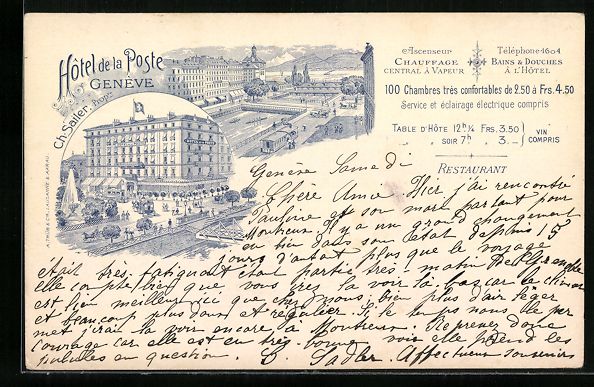 Hôtel de la Poste
GENÈVE
Ch. Sailer, Propr.
Ascenseur
CHAUFFAGE
CENTRAL À VAPEUR
Téléphone 1604
BAINS & DOUCHES
À L'HÔTEL
100 Chambres très confortables de 2.50 à Frs. 4.50
Service et éclairage électrique compris
TABLE D'HÔTE 12 h ¼ FRS. 3.50
SOIR 7 h 3.—
VIN
COMPRIS
RESTAURANT
Genève Samedi
Chère Amie Hier j'ai rencontré
et son mari partant pour
Montreux. Il y a un grand changement
en bien dans son état depuis 15
jours d'autant plus que le voyage
était très fatigant étant partie très matin
elle compte bien que vous irez la voir là-bas car le climat
est bien meilleur ici que chez nous, bien plus d'air léger
et beaucoup plus doux et régulier. Si le temps nous le per
met j'irai la voir encore à Montreux. Reprenez donc
courage car elle est en très bonne voie elle prend les
pilules en question. Affectueux souvenirs